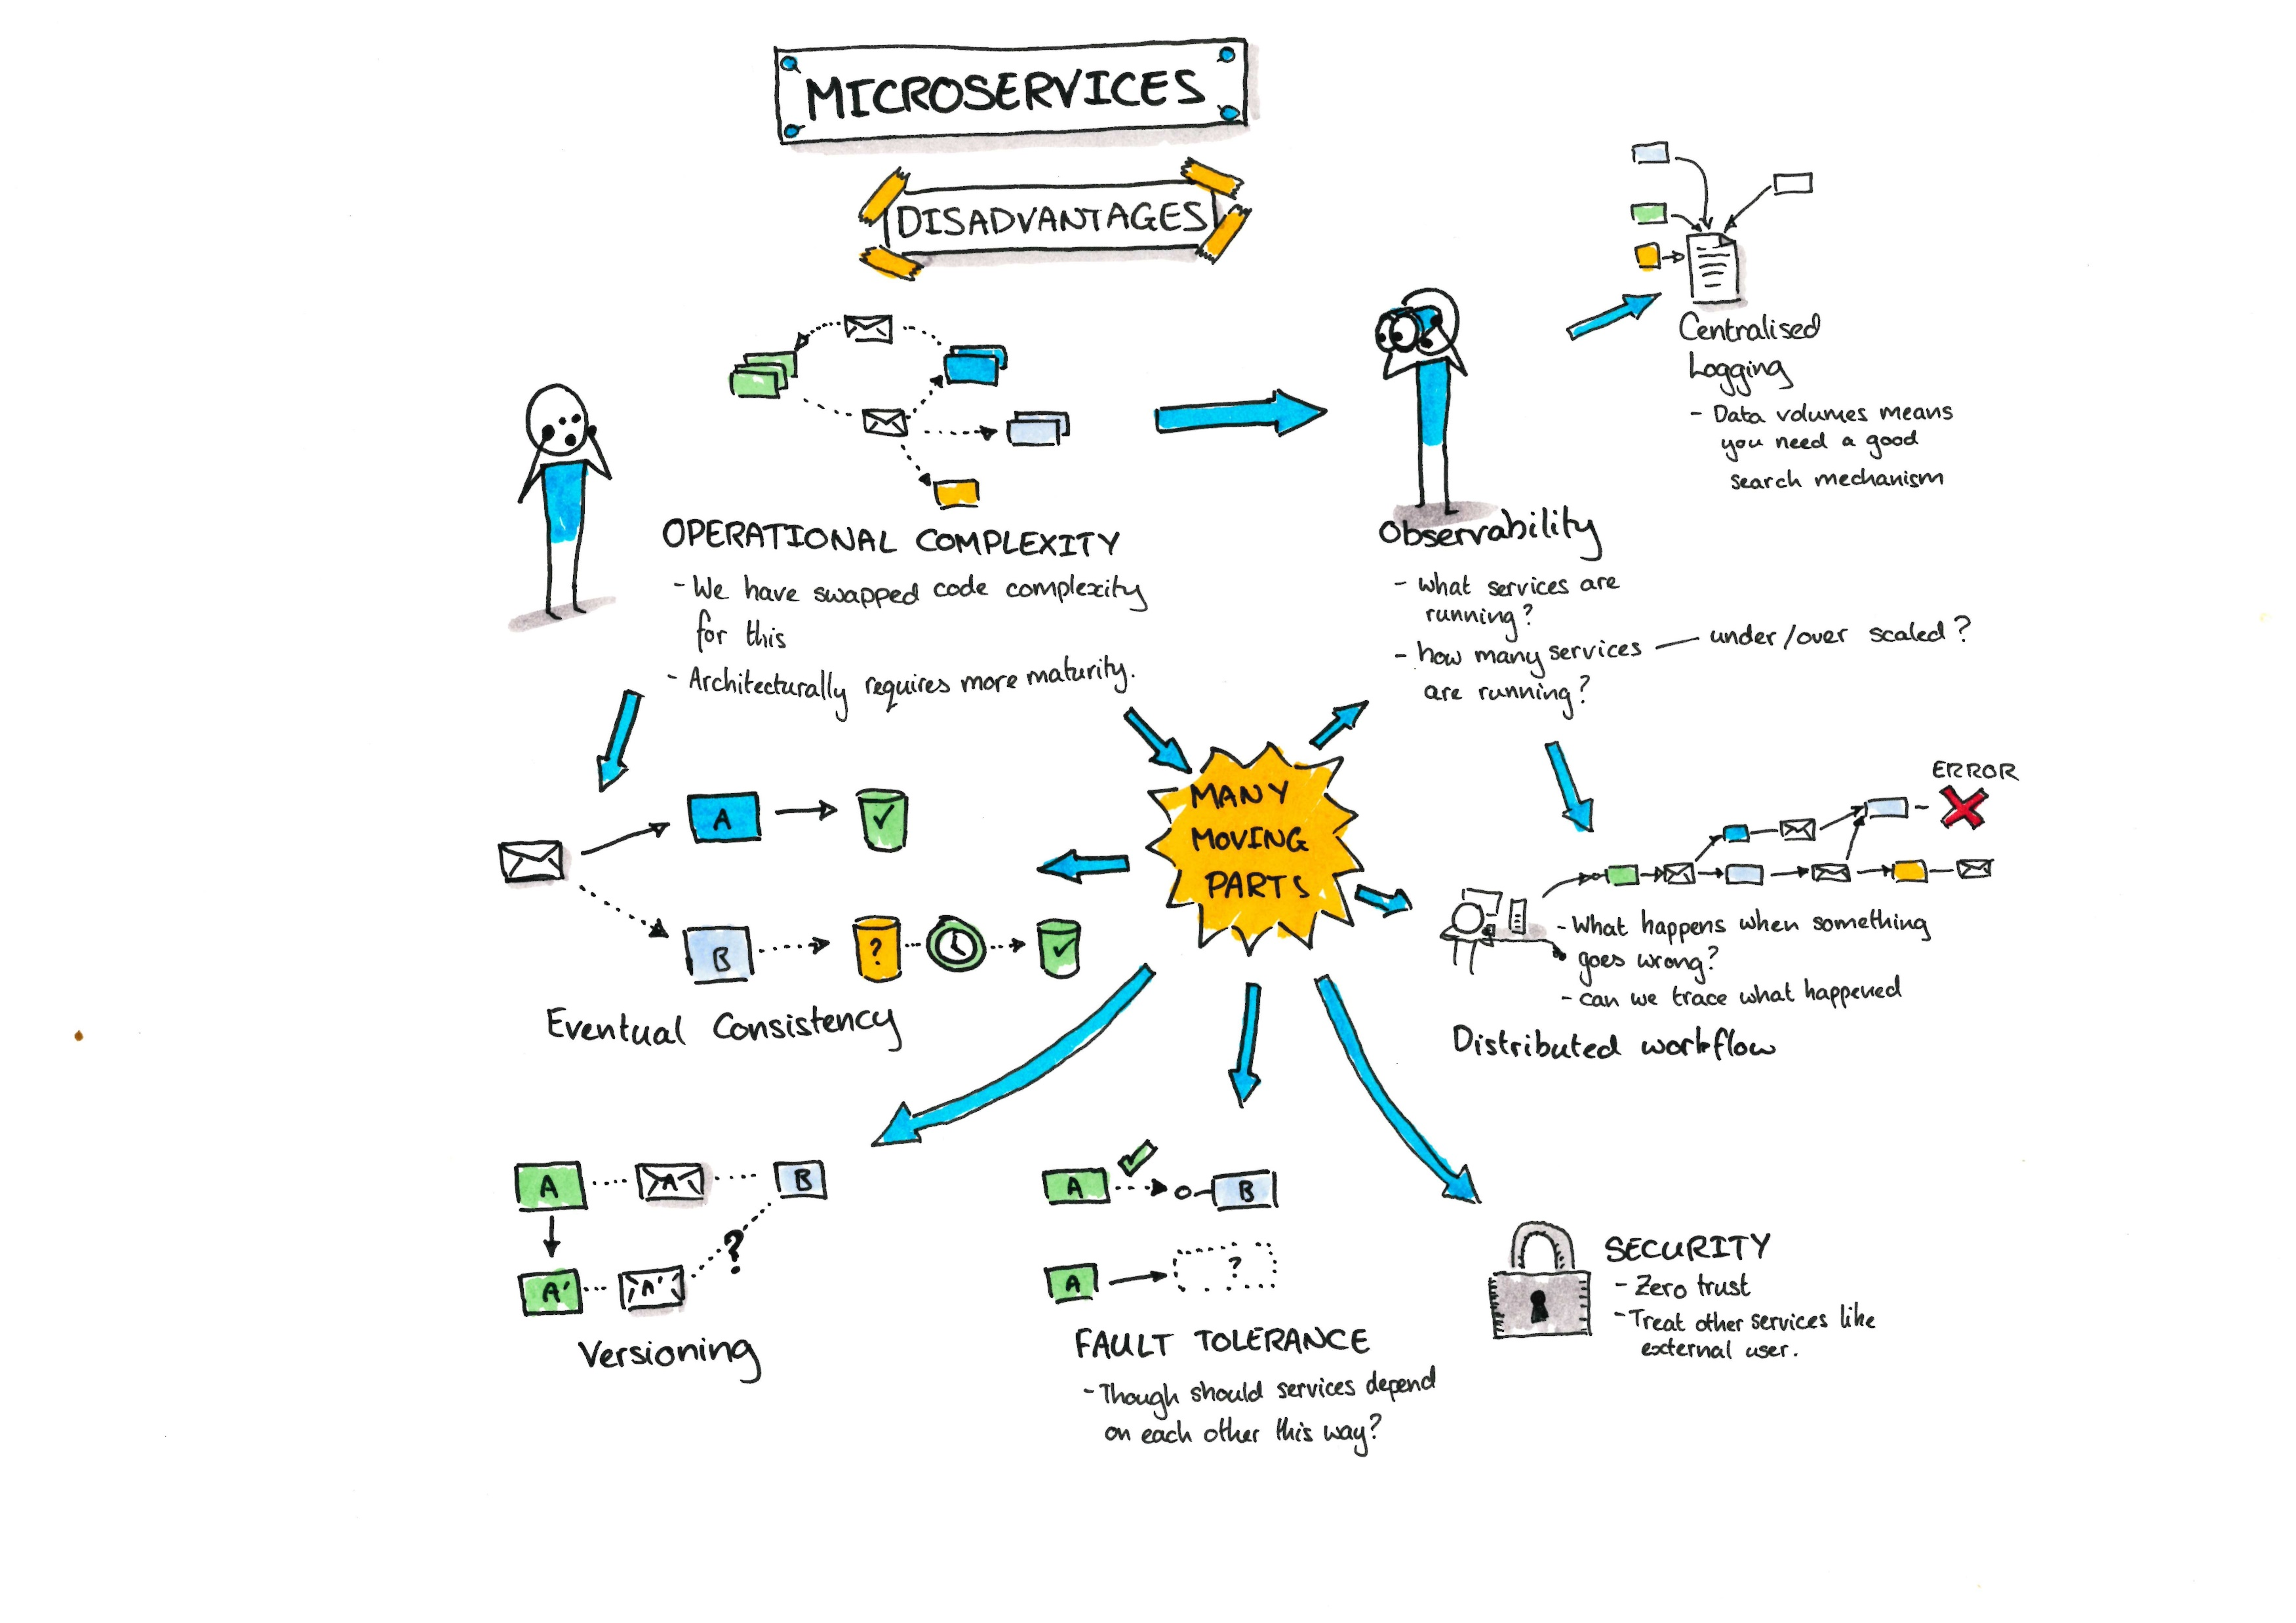 MICROSERVICES
DISADVANTAGES
OPERATIONAL COMPLEXITY
- We have swapped code complexity
for this
- Architecturally requires more maturity.
Observability
- what services are
running?
- how many services — under/over scaled?
are running?
Centralised
Logging
- Data volumes means
you need a good
search mechanism
MANY
MOVING
PARTS
A
B
?
Eventual Consistency
ERROR
- What happens when something
goes wrong?
- can we trace what happened
Distributed workflow
A
A
B
?
A'
A'
Versioning
A
B
A
?
FAULT TOLERANCE
- Though should services depend
on each other this way?
SECURITY
- Zero trust
- Treat other services like
external user.